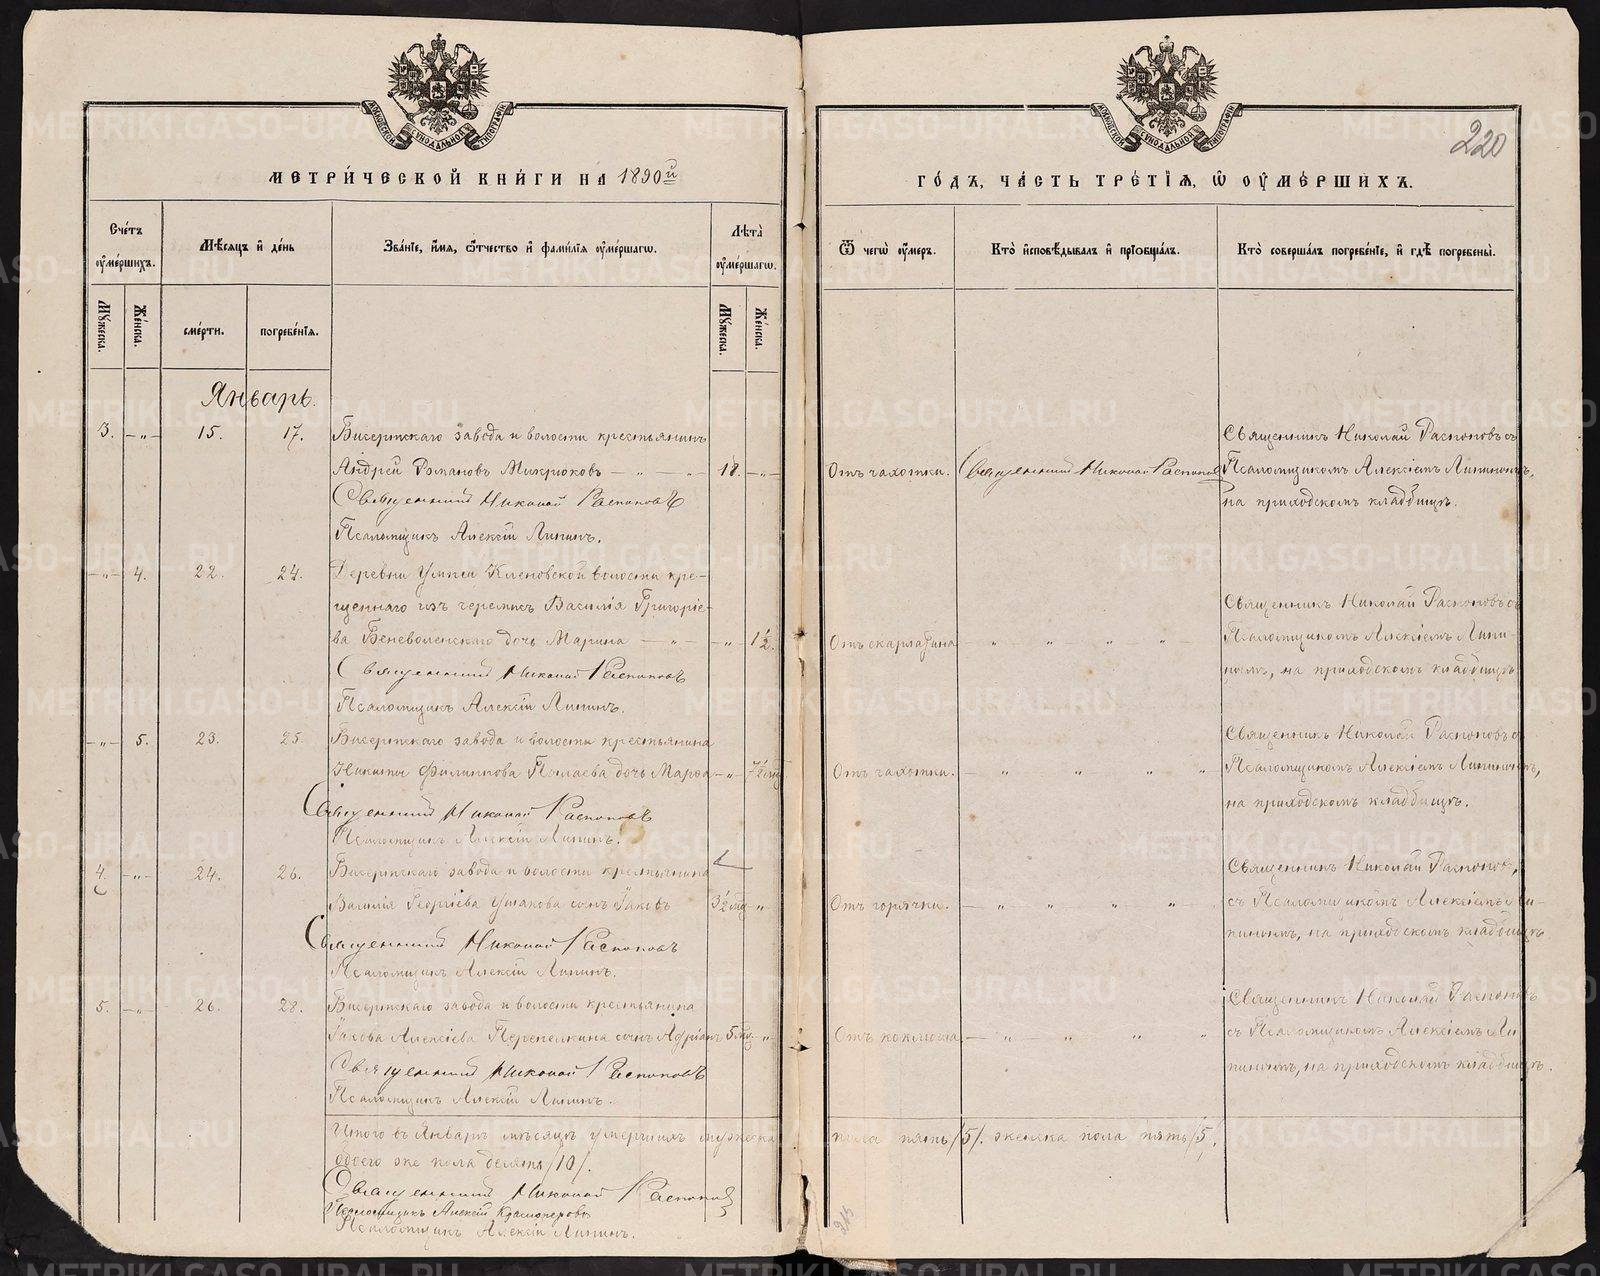 МОСКОВСКОЙ СѴНОДАЛЬНОЙ ТИПОГРАФІИ
МОСКОВСКОЙ СѴНОДАЛЬНОЙ ТИПОГРАФІИ
220
МЕТРИ́ЧЕСКОЙ КНИ́ГИ НА 1890й
ГО́ДЪ, ЧА́СТЬ ТРЕ́ТІѦ, Ѿ ОУМЕ́РШИХЪ.
Сче́тъ оуме́ршихъ.
Мѣ́сяцъ и де́нь
Зва́нїе, и́мя, ѻ́тчество и фами́лїя оуме́ршагѡ.
Лѣта̀ оуме́ршагѡ.
Ѿ чегѡ̀ оу́меръ.
Кто̀ исповѣ́дывалъ и прїобща́лъ.
Кто̀ соверша́лъ погребе́нїе, и гдѣ̀ погребены̀.
Мꙋ́жеска.
Же́нска.
сме́рти.
погребе́нїя.
Мꙋ́жеска.
Же́нска.
Январь.
3. —„— 15. 17. Бисертскаго завода и волости крестьянинъ
Андрей Романовъ Микрюковъ — „ — „ 18. —„—
Священникъ Николай Распоповъ
Псаломщикъ Алексій Липинъ.
Отъ чахотки. Священникъ Николай Распоповъ
Священникъ Николай Распоповъ съ
Псаломщикомъ Алексіемъ Липинымъ,
на приходскомъ кладбищѣ.
—„— 4. 22. 24. Деревни Клёновской волости кре-
щеннаго изъ черемисъ Василія Григоріе-
ва Беневоленскаго дочь Марина — „ — —„— 1½.
Священникъ Николай Распоповъ
Псаломщикъ Алексій Липинъ.
Отъ скарлатина „ „ „ „
Священникъ Николай Распоповъ съ
Псаломщикомъ Алексіемъ Липи-
нымъ, на приходскомъ кладбищѣ
—„— 5. 23. 25. Бисертскаго завода и волости крестьянина
Никиты Филиппова дочь Марфа —„— 7½ мѣс
Священникъ Николай Распоповъ
Псаломщикъ Алексій Липинъ.
Отъ чахотки. — „ „ „ „
Священникъ Николай Распоповъ съ
Псаломщикомъ Алексіемъ Липинымъ,
на приходскомъ кладбищѣ.
4. —„— 24. 26. Бисертскаго завода и волости крестьянина
Василія Георгіева Ушакова сынъ Іаковъ 3½ мѣс „
Священникъ Николай Распоповъ
Псаломщикъ Алексій Липинъ.
Отъ горячки. — „ „ „ „
Священникъ Николай Распоповъ,
съ Псаломщикомъ Алексіемъ Ли-
пинымъ, на приходскомъ кладбищѣ
5. —„— 26. 28. Бисертскаго завода и волости крестьянина
Іакова Алексіева Перепелкина сынъ Адріанъ 5 мѣс. „
Священникъ Николай Распоповъ
Псаломщикъ Алексій Липинъ.
Отъ коклюша. — „ „ „ „
Священникъ Николай Распоповъ
съ Псаломщикомъ Алексіемъ Ли-
пинымъ, на приходскомъ кладбищѣ.
Итого въ Январѣ мѣсяцѣ умершихъ мужеска
пола пять /5/. женска пола пять /5/,
обоего же пола десять /10/.
Священникъ Николай Распоповъ
Псаломщикъ Алексій Красноперовъ
Псаломщикъ Алексій Липинъ.
METRIKI.GASO-URAL.RU